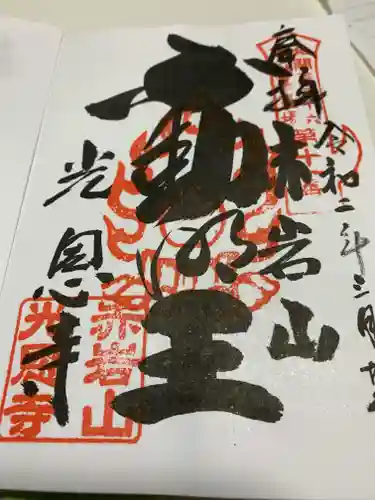 奉拝
令和二年三月廿二
赤岩山
不動明王
光恩寺
赤岩山
光恩寺